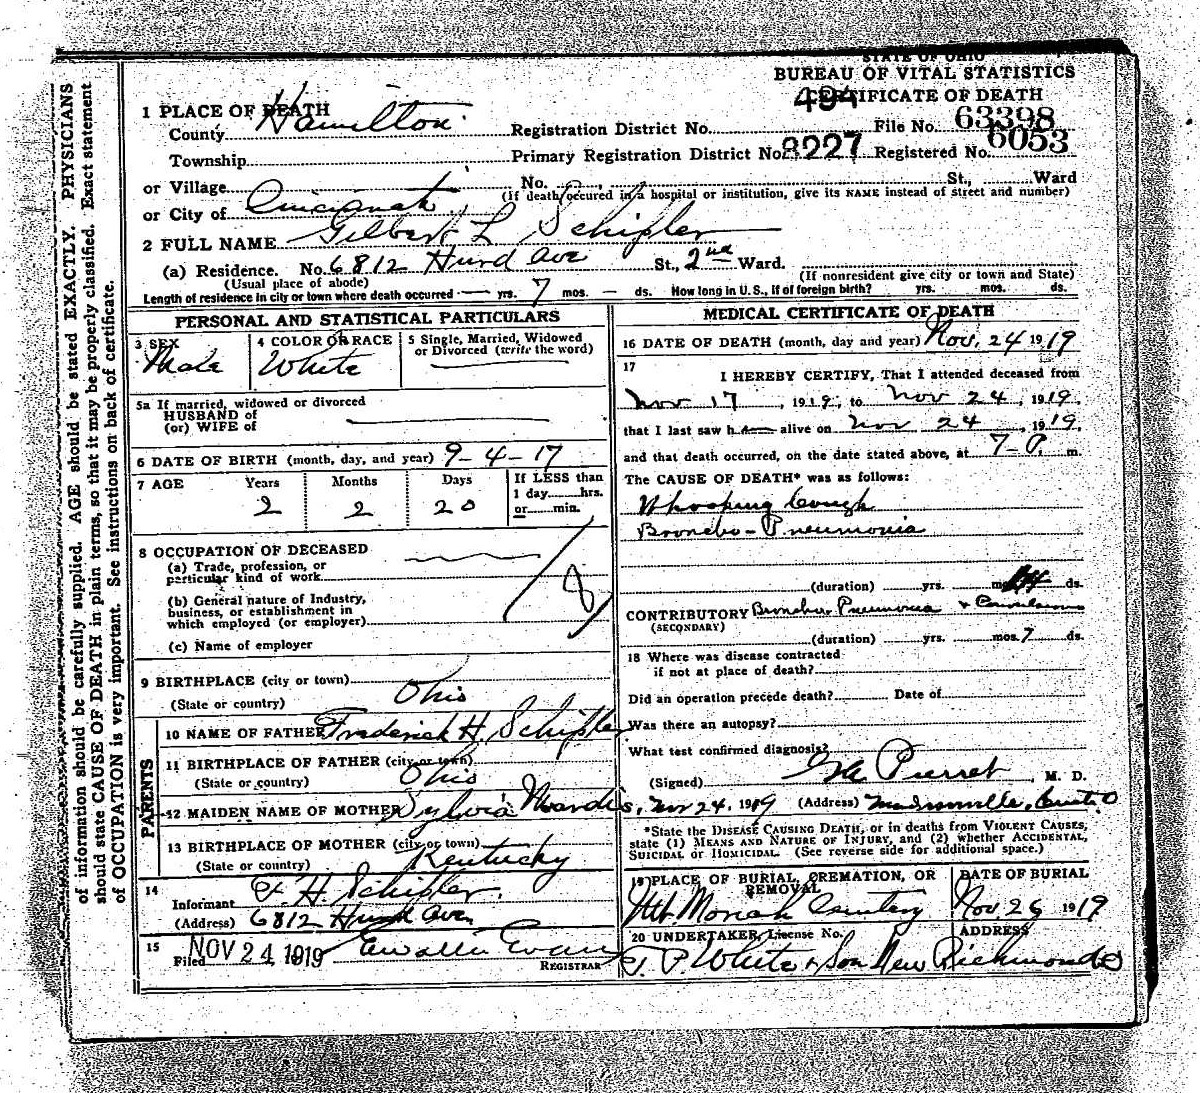 STATE OF OHIO
BUREAU OF VITAL STATISTICS
CERTIFICATE OF DEATH
1 PLACE OF DEATH
County Hamilton Registration District No. 494 File No. 63398
Township Primary Registration District No. 8227 Registered No. 6053
or Village No. St., Ward
(If death occured in a hospital or institution, give its NAME instead of street and number)
or City of Cincinnati
2 FULL NAME Gilbert L Schipler
(a) Residence. No. 6812 Hurd Ave St., 2nd Ward.
(Usual place of abode) (If nonresident give city or town and State)
Length of residence in city or town where death occurred — yrs. 7 mos. — ds. How long in U. S., if of foreign birth? yrs. mos. ds.
PERSONAL AND STATISTICAL PARTICULARS
3 SEX Male
4 COLOR OR RACE White
5 Single, Married, Widowed
or Divorced (write the word)
5a If married, widowed or divorced
HUSBAND of
(or) WIFE of
6 DATE OF BIRTH (month, day, and year) 9-4-17
7 AGE Years Months Days If LESS than
1 day hrs.
or min.
2 2 20
8 OCCUPATION OF DECEASED
(a) Trade, profession, or
particular kind of work
(b) General nature of Industry,
business, or establishment in
which employed (or employer)
(c) Name of employer
8
9 BIRTHPLACE (city or town)
(State or country) Ohio
PARENTS
10 NAME OF FATHER Frederick H. Schipler
11 BIRTHPLACE OF FATHER (city or town)
(State or country) Ohio
12 MAIDEN NAME OF MOTHER Sylvia
13 BIRTHPLACE OF MOTHER (city or town)
(State or country) Kentucky
14
Informant F. H. Schipler
(Address) 6812 Hurd Ave.
15
Filed NOV 24 1919 Evans
REGISTRAR
MEDICAL CERTIFICATE OF DEATH
16 DATE OF DEATH (month, day and year) Nov. 24 1919
17
I HEREBY CERTIFY, That I attended deceased from
Nov 17, 1919, to Nov 24, 1919,
that I last saw h alive on Nov 24, 1919,
and that death occurred, on the date stated above, at 7-P. m.
The CAUSE OF DEATH* was as follows:
Whooping Cough
Broncho-Pneumonia
(duration) yrs. mos. 14 ds.
CONTRIBUTORY Broncho Pneumonia + Convulsions
(SECONDARY)
(duration) yrs. mos. 7 ds.
18 Where was disease contracted
if not at place of death?
Did an operation precede death? Date of
Was there an autopsy?
What test confirmed diagnosis?
(Signed) Pierret, M. D.
Nov 24, 1919 (Address) Madisonville, O
*State the DISEASE CAUSING DEATH, or in deaths from VIOLENT CAUSES,
state (1) MEANS AND NATURE OF INJURY, and (2) whether ACCIDENTAL,
SUICIDAL or HOMICIDAL. (See reverse side for additional space.)
19 PLACE OF BURIAL, CREMATION, OR
REMOVAL
Mt Moriah Cemetery
DATE OF BURIAL
Nov. 26 1919
20 UNDERTAKER, License No. ADDRESS
T P White & Son New Richmond O
of information should be carefully supplied. AGE should be stated EXACTLY. PHYSICIANS
should state CAUSE OF DEATH in plain terms, so that it may be properly classified. Exact statement
of OCCUPATION is very important. See instructions on back of certificate.